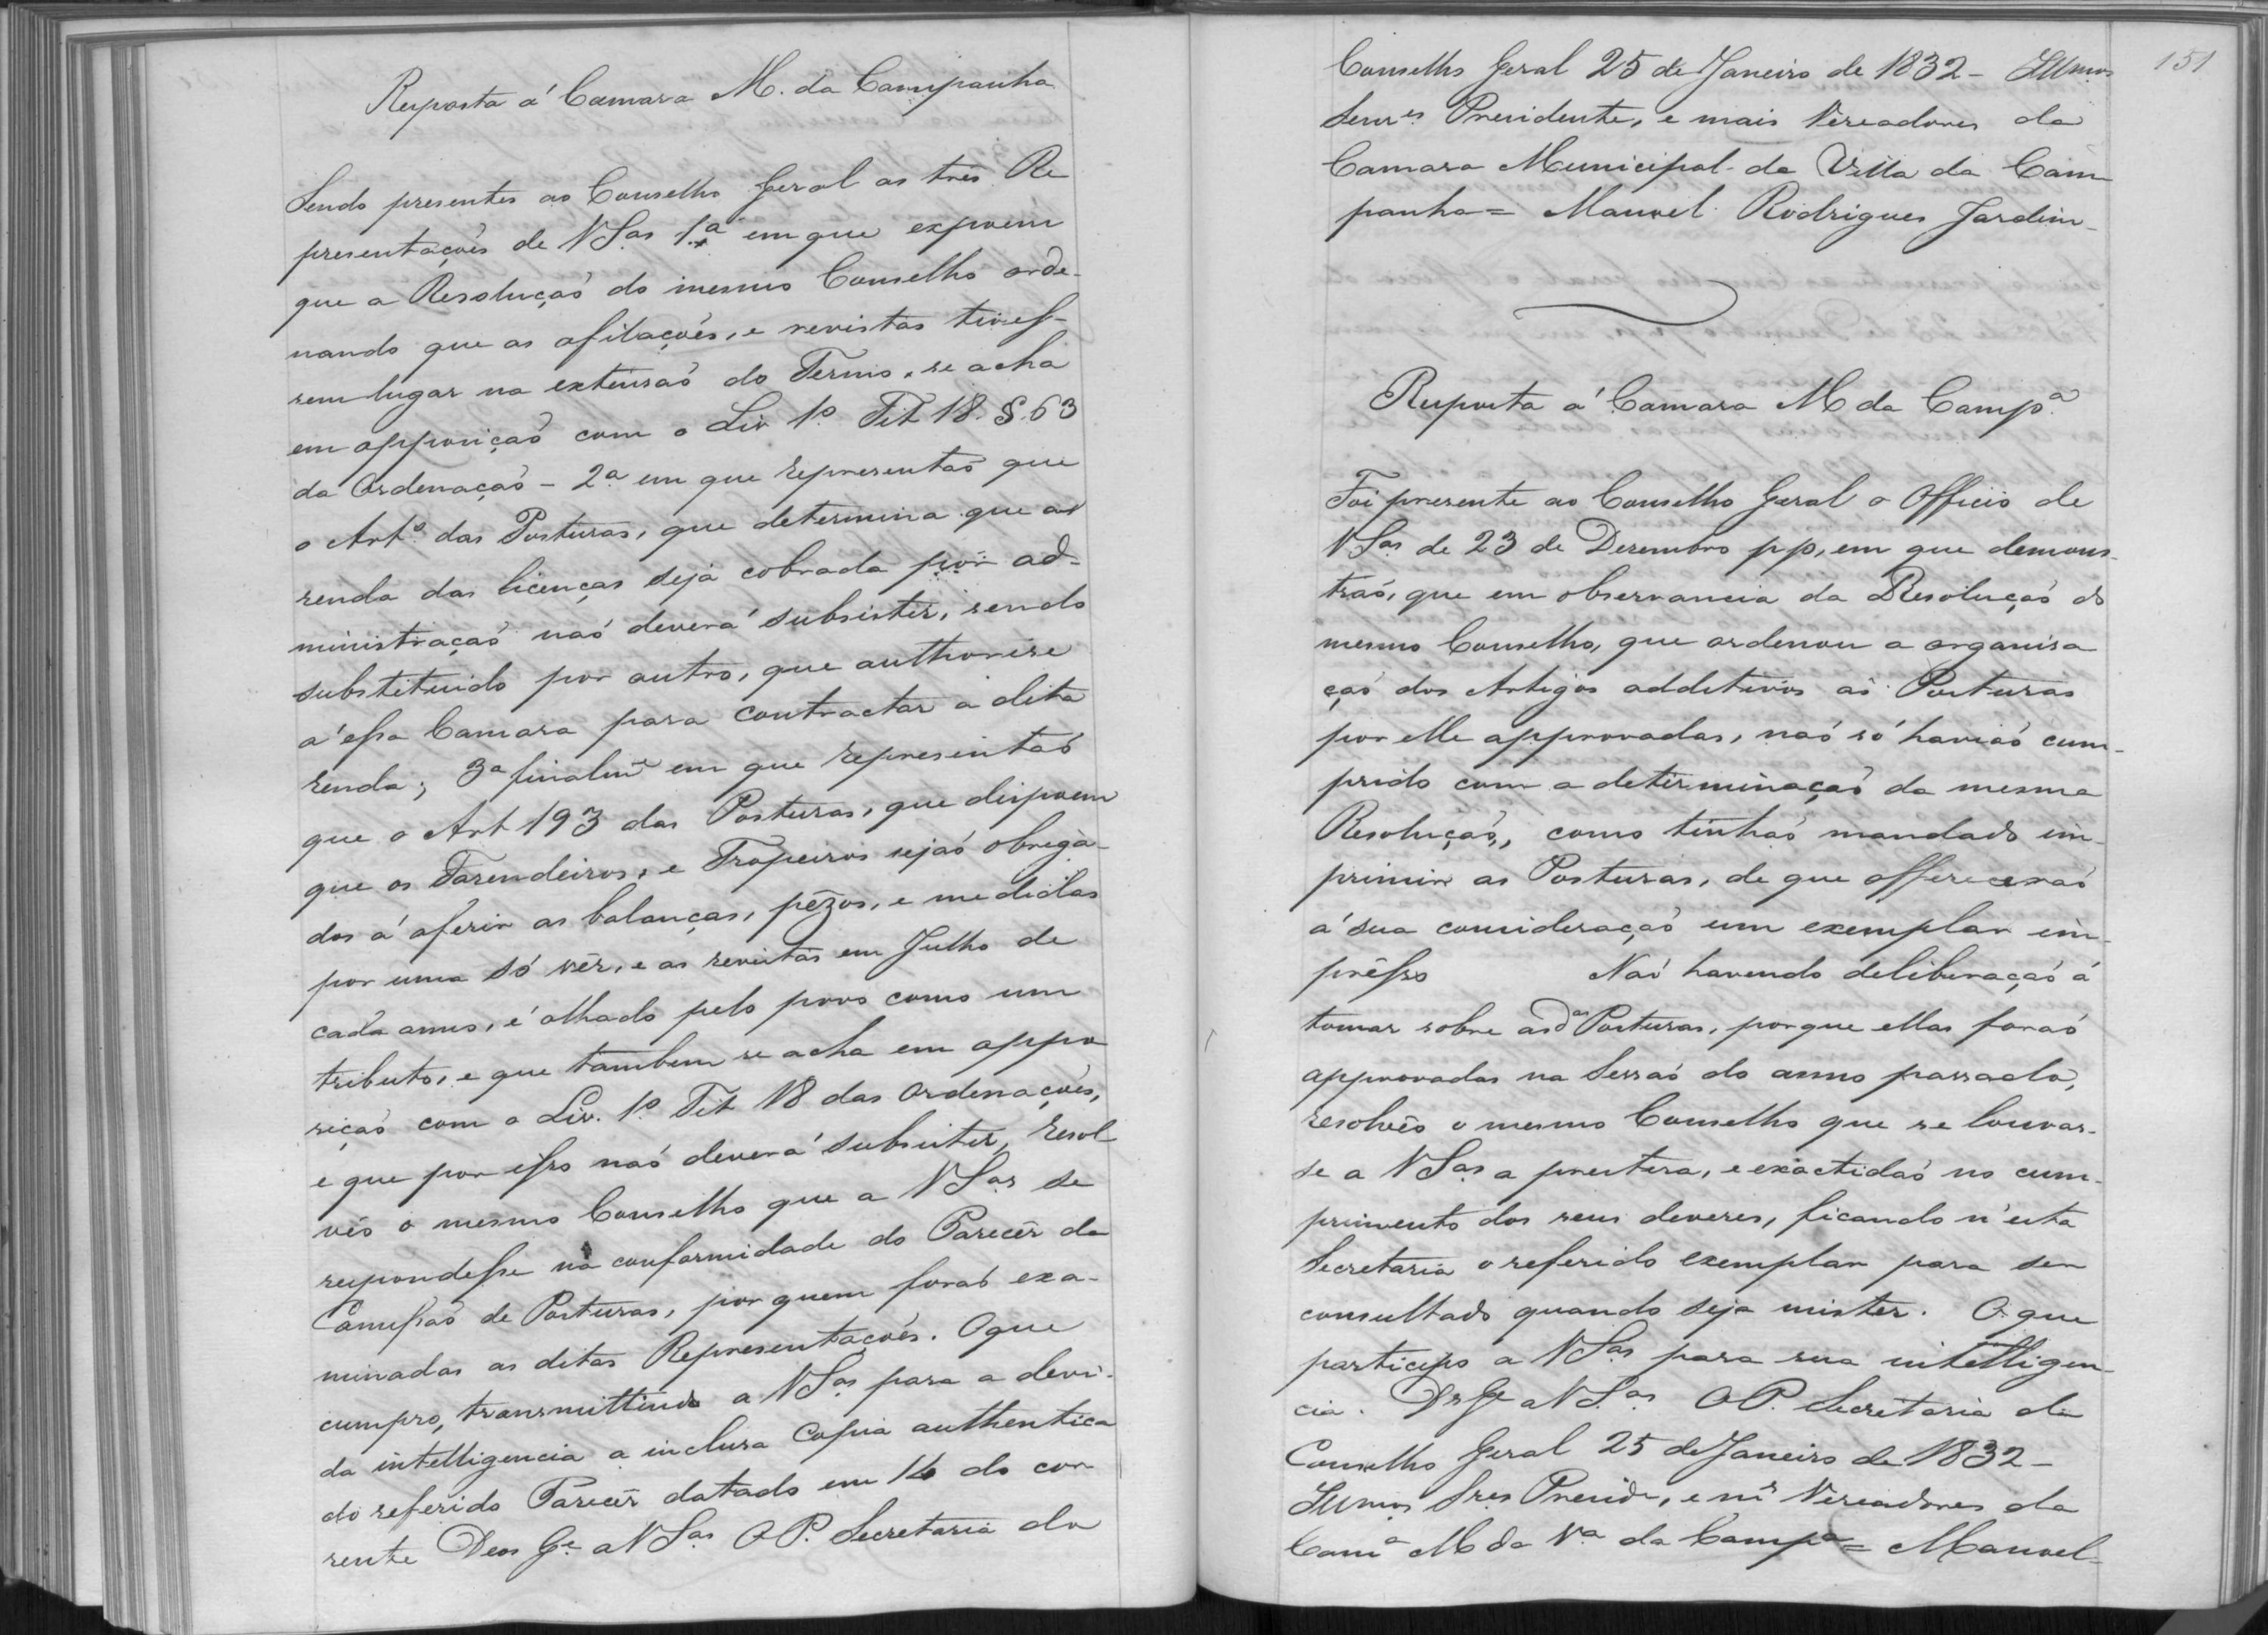 Resposta á Camara M. da Campanha
Sendo presentes ao Conselho Geral as três Re
presentaçoẽs de VSas 1.ª em que expoem
que a Resoluçaõ do mesmo Conselho orde-
nando que as afilaçoẽs, e revistas tivesse-
rem lugar na extensaõ do Termo, se acha
em opposiçaõ com o Liv 1º Tit 18. §. 63
da Ordenaçaõ - 2ª em que representaõ que
o Artº das Posturas, que determina que a
renda das licenças seja cobrada por ad-
ministraçaõ naõ deverá subsistir, sendo
substituido por outro, que authorise
a' essa Camara para contractar a dita
renda; 3ª finalmte em que representaõ
que o Art 193 das Posturas, que dispoem
que os Fazendeiros, e Tropeiros sejaõ obriga-
dos á aferir as balanças, pêzos, e medidas
por uma só vêz, e as revistas em Julho de
cada anno, é olhado pelo povo como um
tributo, e que tambem se acha em oppo
siçaõ com o Liv. 1º Tit 18 das Ordenaçoẽs,
e que por isso naõ deverá subsistir, resol
vêo o mesmo Conselho que a VSas se
respondesse na conformidade do Parecêr da
Comissaõ de Posturas, por quem foraõ exa-
minadas as ditas Representaçoẽs. O que
cumpro, transmittindo a VSas para a devi-
da intelligencia a inclusa Copia authentica
do referido Parecêr datado em 16 do cor
rente Deos Ge a VSas O P. Secretaria do
151
Conselho Geral 25 de Janeiro de 1832 - Illmos
Senres Presidente, e mais Vereadores da
Camara Municipal da Villa da Cam
panha = Manoel Rodrigues Jardim -
Resposta á Camara M da Campª
Foi presente ao Conselho Geral o Officio de
VSas de 23 de Dezembro pp, em que demons-
traõ, que em observancia da Resoluçaõ do
mesmo Conselho, que ordenou a organisa
çaõ dos Artigos additivos ás Posturas
por elle approvadas, naõ só haviaõ cum-
prido com a determinaçaõ da mesma
Resoluçaõ, como tinhaõ mandado im-
primir as Posturas, de que offereceraõ
á sua consideraçaõ um exemplar im-
prêsso Naõ havendo deliberaçaõ á
tomar sobre as das Posturas, porque ellas foraõ
approvadas na Sessaõ do anno passado,
resolvêo o mesmo Conselho que se louvas-
se a VSas a presteza, e exactidaõ no cum-
primento dos seus deveres, ficando n'esta
Secretaria o referido exemplar para ser
consultado quando seja mister. O que
participo a VSas para sua intelligen-
cia. Ds Ge a VSas O P. Secretaria do
Conselho Geral 25 de Janeiro de 1832 -
Illmos Sres Preside, e ms Vereadores da
Camª M da Vª da Campª = Manoel